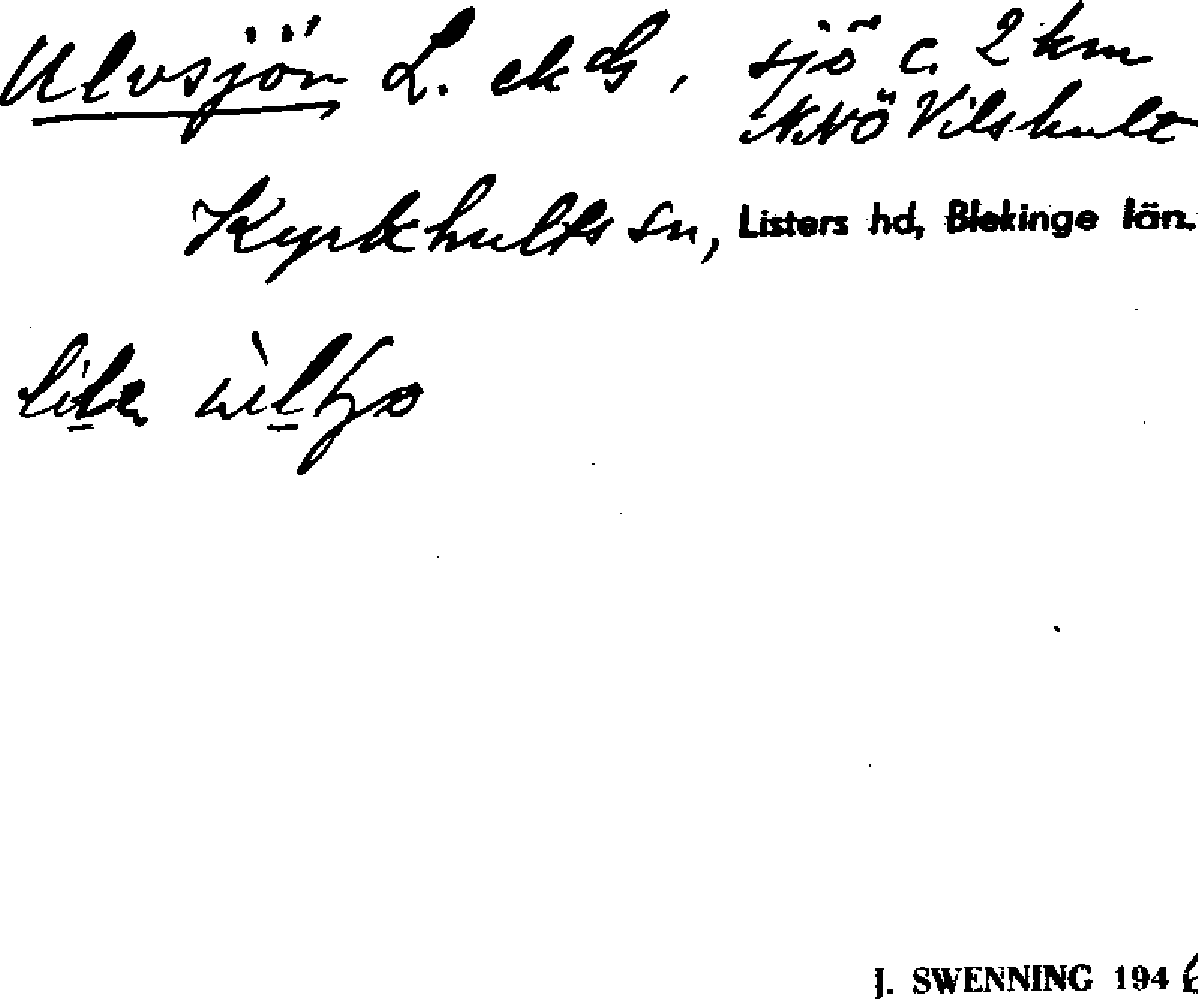 Ulvsjön L. ekG, sjö c. 2 km
NNÖ Vilshult
Kyrkhults sn, Listers hd, Blekinge län.
J. SWENNING 1946